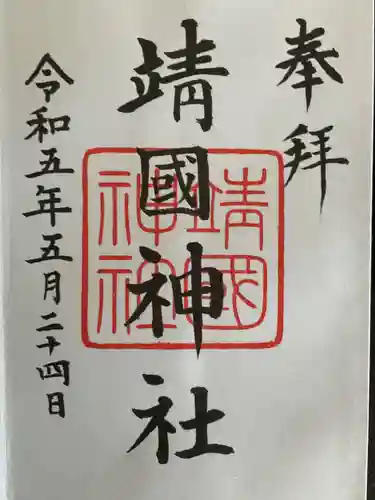 奉拝
靖國神社
靖國
神社
令和五年五月二十四日